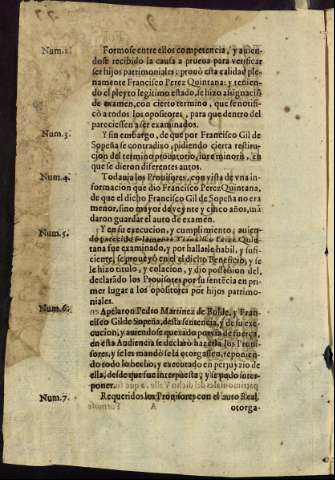 Num.2. Formose entre ellos competencia, y auien-
dose recibido la causa a prueua para verificar
ser hijos patrimoniales: prouò esta calidad ple-
namente Francisco Perez Quintana: y teniendo
el pleyto legitimo estado, se hizo asignació
de examen, con cierto termino, que se notifi-
cò a todos los opositores, para que dentro del
pareciessen a ser examinados.
Num.3. Y sin embargo, de que por Francisco Gil de
Sopeña se contradixo, pidiendo cierta restitu-
cion del termino prouatorio, iure minoris, en
que se dieron diferentes autos.
Num.4. Toda uia los Prouisores, con vista de vna in-
formacion que dio Francisco Perez Quintana,
de que el dicho Francisco Gil de Sopeña no era
menor, sino mayor de veynte y cinco años, má
daron guardar el auto de examen.
Num.5. Y en su execucion, y cumplimiento, auien-
do parecido solamente Francisco Perez Quin-
tana fue examinado, y por hallarle habil, y sufi-
ciente, se proueyò en el el dicho Beneficio, y se
le hizo titulo, y colacion, y dio possession del,
declarādo los Prouisores por su sentēcia en pri-
mer lugar a los opositores por hijos patrimo-
niales.
Num.6. Apelaron Pedro Martinez de Bolde, y Fran-
cisco Gil de Sopeña, desta sentencia, y de su exe-
cucion, y auiendose quexado por via de fuerça,
en esta Audiencia se declarò hazerla los Proui-
sores, y se les mandò se la otorgassen, reponien-
do todo lo hecho, y executado en perjuyzio de
ella, desde que fue interpuesta, y se pudo inter-
poner.
Num.7. Requeridos los Prouisores con el auto Real,
A
otorga-